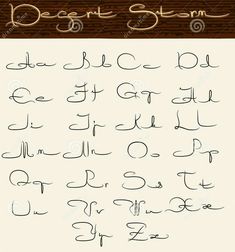 Desert Storm
Aa Bb Cc Dd
Ee Ff Gg Hh
Ii Jj Kk Ll
Mm Nn Oo Pp
Qq Rr Ss Tt
Uu Vv Ww Xx
Yy Zz